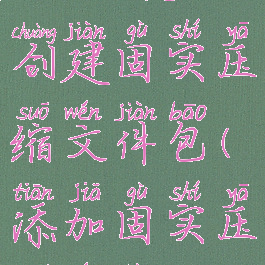 chuàng jiàn gù shí yā
创建固实压
suō wén jiàn bāo
缩文件包(
tiān jiā gù shí yā
添加固实压